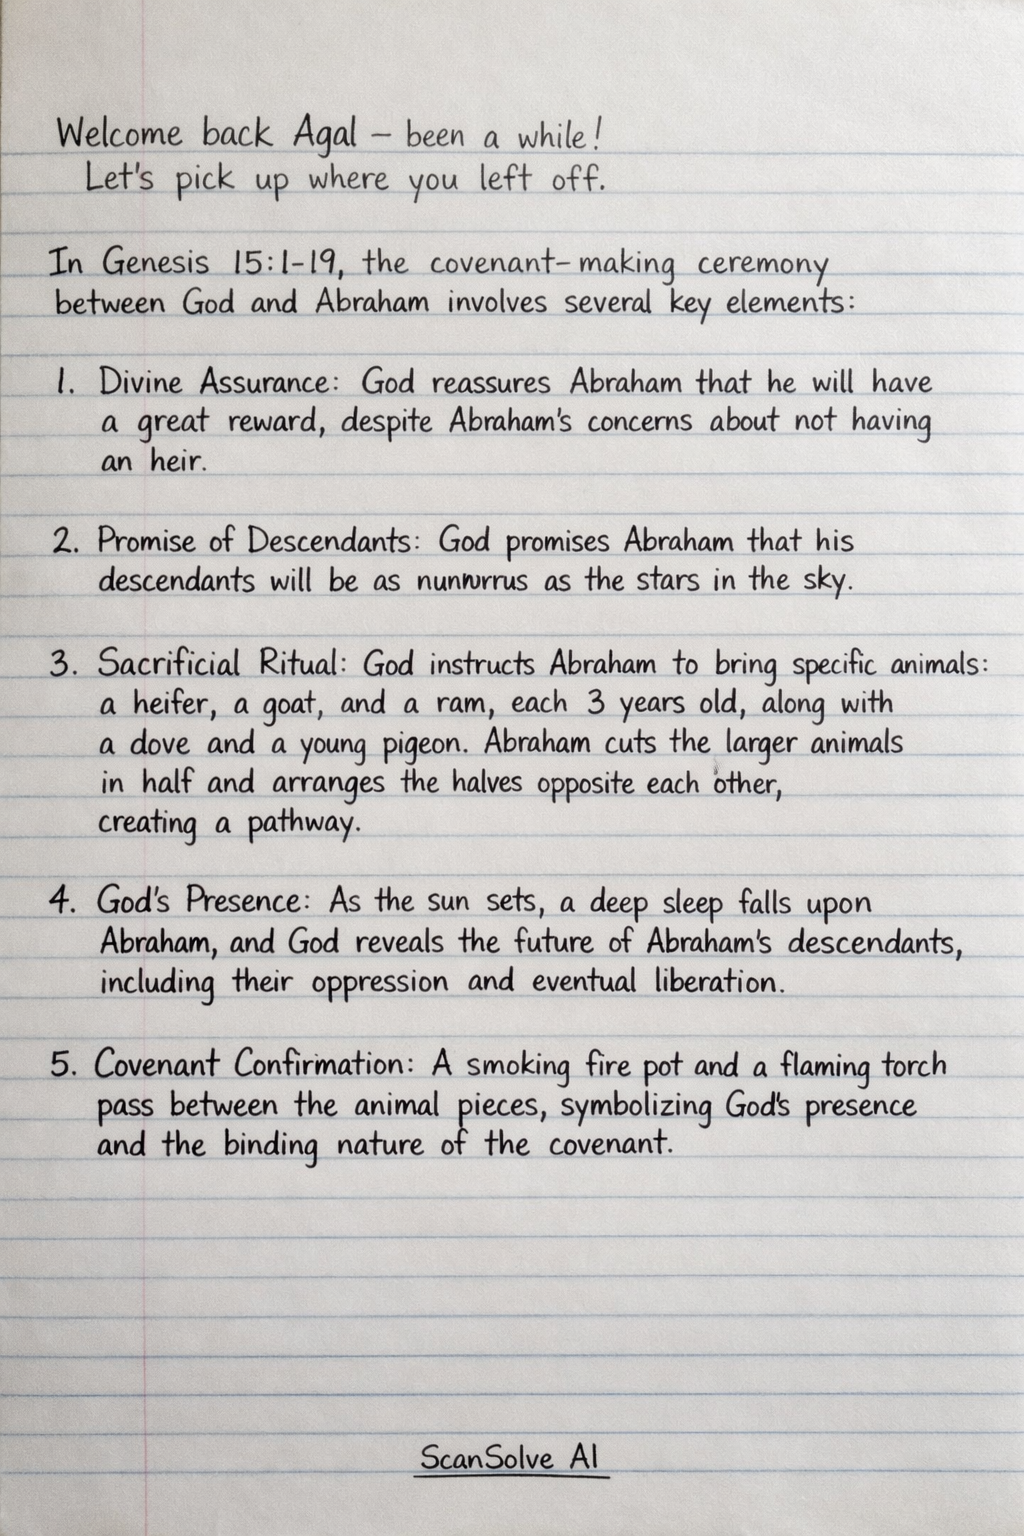 Welcome back Agal – been a while!
Let's pick up where you left off.
In Genesis 15:1-19, the covenant-making ceremony
between God and Abraham involves several key elements:
1. Divine Assurance: God reassures Abraham that he will have
a great reward, despite Abraham's concerns about not having
an heir.
2. Promise of Descendants: God promises Abraham that his
descendants will be as as the stars in the sky.
3. Sacrificial Ritual: God instructs Abraham to bring specific animals:
a heifer, a goat, and a ram, each 3 years old, along with
a dove and a young pigeon. Abraham cuts the larger animals
in half and arranges the halves opposite each other,
creating a pathway.
4. God's Presence: As the sun sets, a deep sleep falls upon
Abraham, and God reveals the future of Abraham's descendants,
including their oppression and eventual liberation.
5. Covenant Confirmation: A smoking fire pot and a flaming torch
pass between the animal pieces, symbolizing God's presence
and the binding nature of the covenant.
ScanSolve AI